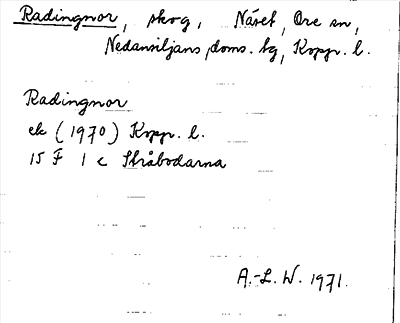 Radingnor, skog, Näset, Ore sn,
Nedansiljans doms. tg, Kopp. l.
Radingnor
ek (1970) Kopp. l.
15 F 1 c Stråbodarna
A.-L. W. 1971.